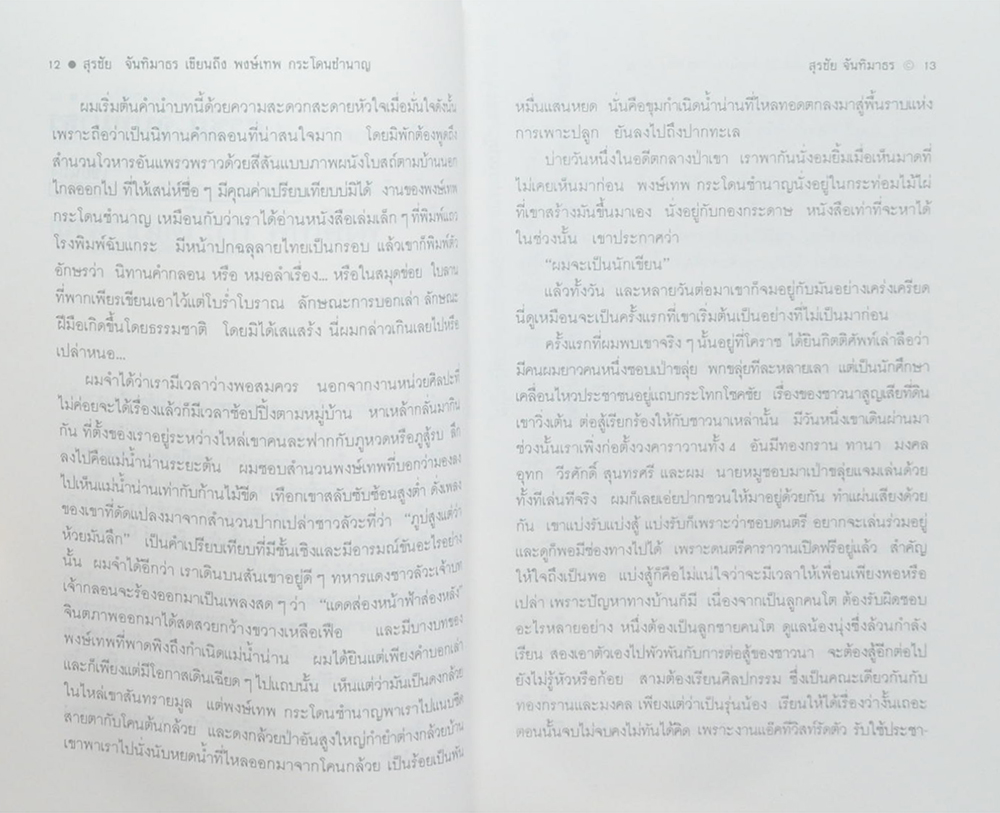 12 ● สุรชัย จันทิมาธร เขียนถึง พงษ์เทพ กระโดนชำนาญ
ผมเริ่มต้นคำนำบทนี้ด้วยความสะดวกสะดายหัวใจเมื่อมั่นใจดังนั้น
เพราะถือว่าเป็นนิทานคำกลอนที่น่าสนใจมาก โดยมิพักต้องพูดถึง
สำนวนโวหารอันแพรวพราวด้วยสีสันแบบภาพผนังโบสถ์ตามบ้านนอก
ไกลออกไป ที่ให้เสน่ห์ซื่อ ๆ มีคุณค่าเปรียบเทียบปมิได้ งานของพงษ์เทพ
กระโดนชำนาญ เหมือนกับว่าเราได้อ่านหนังสือเล่มเล็ก ๆ ที่พิมพ์แถว
โรงพิมพ์ฉับแกระ มีหน้าปกฉลุลายไทยเป็นกรอบ แล้วเขาก็พิมพ์ตัว
อักษรว่า นิทานคำกลอน หรือ หมอลำเรื่อง... หรือในสมุดข่อย ใบลาน
ที่พากเพียรเขียนเอาไว้แต่โบร่ำโบราณ ลักษณะการบอกเล่า ลักษณะ
ฝีมือเกิดขึ้นโดยธรรมชาติ โดยมิได้เสแสร้ง นี่ผมกล่าวเกินเลยไปหรือ
เปล่าหนอ...
ผมจำได้ว่าเรามีเวลาว่างพอสมควร นอกจากงานหน่วยศิลปะที่
ไม่ค่อยจะได้เรื่องแล้วก็มีเวลาช้อปปิ้งตามหมู่บ้าน หาเหล้ากลั่นมากิน
กัน ที่ตั้งของเราอยู่ระหว่างไหล่เขาคนละฟากกับภูหวดหรือภูสู้รบ ลึก
ลงไปคือแม่น้ำน่านระยะต้น ผมชอบสำนวนพงษ์เทพที่บอกว่ามองลง
ไปเห็นแม่น้ำน่านเท่ากับก้านไม้ขีด เทือกเขาสลับซับซ้อนสูงต่ำ ดั่งเพลง
ของเขาที่ดัดแปลงมาจากสำนวนปากเปล่าชาวลัวะที่ว่า "ภูปสูงแต่ว่า
ห้วยมันลึก" เป็นคำเปรียบเทียบที่มีชั้นเชิงและมีอารมณ์ขันอะไรอย่าง
นั้น ผมจำได้อีกว่า เราเดินบนสันเขาอยู่ดี ๆ ทหารแดงชาวลัวะเจ้าบท
เจ้ากลอนจะร้องออกมาเป็นเพลงสด ๆ ว่า "แดดส่องหน้าฟ้าส่องหลัง"
จินตภาพออกมาได้สดสวยกว้างขวางเหลือเฟือ และมีบางบทของ
พงษ์เทพที่พาดพิงถึงกำเนิดแม่น้ำน่าน ผมได้ยินแต่เพียงคำบอกเล่า
และก็เพียงแต่มีโอกาสเดินเฉียด ๆ ไปแถบนั้น เห็นแต่ว่ามันเป็นดงกล้วย
ในไหล่เขาสันทรายมูล แต่พงษ์เทพ กระโดนชำนาญพาเราไปแนบชิด
สายตากับโคนต้นกล้วย และดงกล้วยป่าอันสูงใหญ่กำยำต่างกล้วยบ้าน
เขาพาเราไปนั่งนับหยดน้ำที่ไหลออกมาจากโคนกล้วย เป็นร้อยเป็นพัน
สุรชัย จันทิมาธร ○ 13
หมื่นแสนหยด นั่นคือขุมกำเนิดน้ำน่านที่ไหลทอดตกลงมาสู่พื้นราบแห่ง
การเพาะปลูก ยันลงไปถึงปากทะเล
บ่ายวันหนึ่งในอดีตกลางป่าเขา เราพากันนั่งอมยิ้มเมื่อเห็นมาดที่
ไม่เคยเห็นมาก่อน พงษ์เทพ กระโดนชำนาญนั่งอยู่ในกระท่อมไม้ไผ่
ที่เขาสร้างมันขึ้นมาเอง นั่งอยู่กับกองกระดาษ หนังสือเท่าที่จะหาได้
ในช่วงนั้น เขาประกาศว่า
"ผมจะเป็นนักเขียน"
แล้วทั้งวัน และหลายวันต่อมาเขาก็จมอยู่กับมันอย่างเคร่งเครียด
นี่ดูเหมือนจะเป็นครั้งแรกที่เขาเริ่มต้นเป็นอย่างที่ไม่เป็นมาก่อน
ครั้งแรกที่ผมพบเขาจริง ๆ นั้นอยู่ที่โคราช ได้ยินกิตติศัพท์เล่าลือว่า
มีคนผมยาวคนหนึ่งชอบเป่าขลุ่ย พกขลุ่ยทีละหลายเลา แต่เป็นนักศึกษา
เคลื่อนไหวประชาชนอยู่แถบกระโทกโชคชัย เรื่องของชาวนาสูญเสียที่ดิน
เขาวิ่งเต้น ต่อสู้เรียกร้องให้กับชาวนาเหล่านั้น มีวันหนึ่งเขาเดินผ่านมา
ช่วงนั้นเราเพิ่งก่อตั้งวงคาราวานทั้ง 4 อันมีทองกราน ทานา มงคล
อุทก วีรศักดิ์ สุนทรศรี และผม นายหมูชอบมาเป่าขลุ่ยแจมเล่นด้วย
ทั้งทีเล่นทีจริง ผมก็เลยเอ่ยปากชวนให้มาอยู่ด้วยกัน ทำแผ่นเสียงด้วย
กัน เขาแบ่งรับแบ่งสู้ แบ่งรับก็เพราะว่าชอบดนตรี อยากจะเล่นร่วมอยู่
และดูก็พอมีช่องทางไปได้ เพราะดนตรีคาราวานเปิดฟรีอยู่แล้ว สำคัญ
ให้ใจถึงเป็นพอ แบ่งสู้ก็คือไม่แน่ใจว่าจะมีเวลาให้เพื่อนเพียงพอหรือ
เปล่า เพราะปัญหาทางบ้านก็มี เนื่องจากเป็นลูกคนโต ต้องรับผิดชอบ
อะไรหลายอย่าง หนึ่งต้องเป็นลูกชายคนโต ดูแลน้องนุ่งซึ่งล้วนกำลัง
เรียน สองเอาตัวเองไปพัวพันกับการต่อสู้ของชาวนา จะต้องสู้อีกต่อไป
ยังไม่รู้หัวหรือก้อย สามต้องเรียนศิลปกรรม ซึ่งเป็นคณะเดียวกันกับ
ทองกรานและมงคล เพียงแต่ว่าเป็นรุ่นน้อง เรียนให้ได้เรื่องว่างั้นเถอะ
ตอนนั้นจบไม่จบคงไม่ทันได้คิด เพราะงานแอ๊คทีวิสท์รัดตัว รับใช้ประชา-